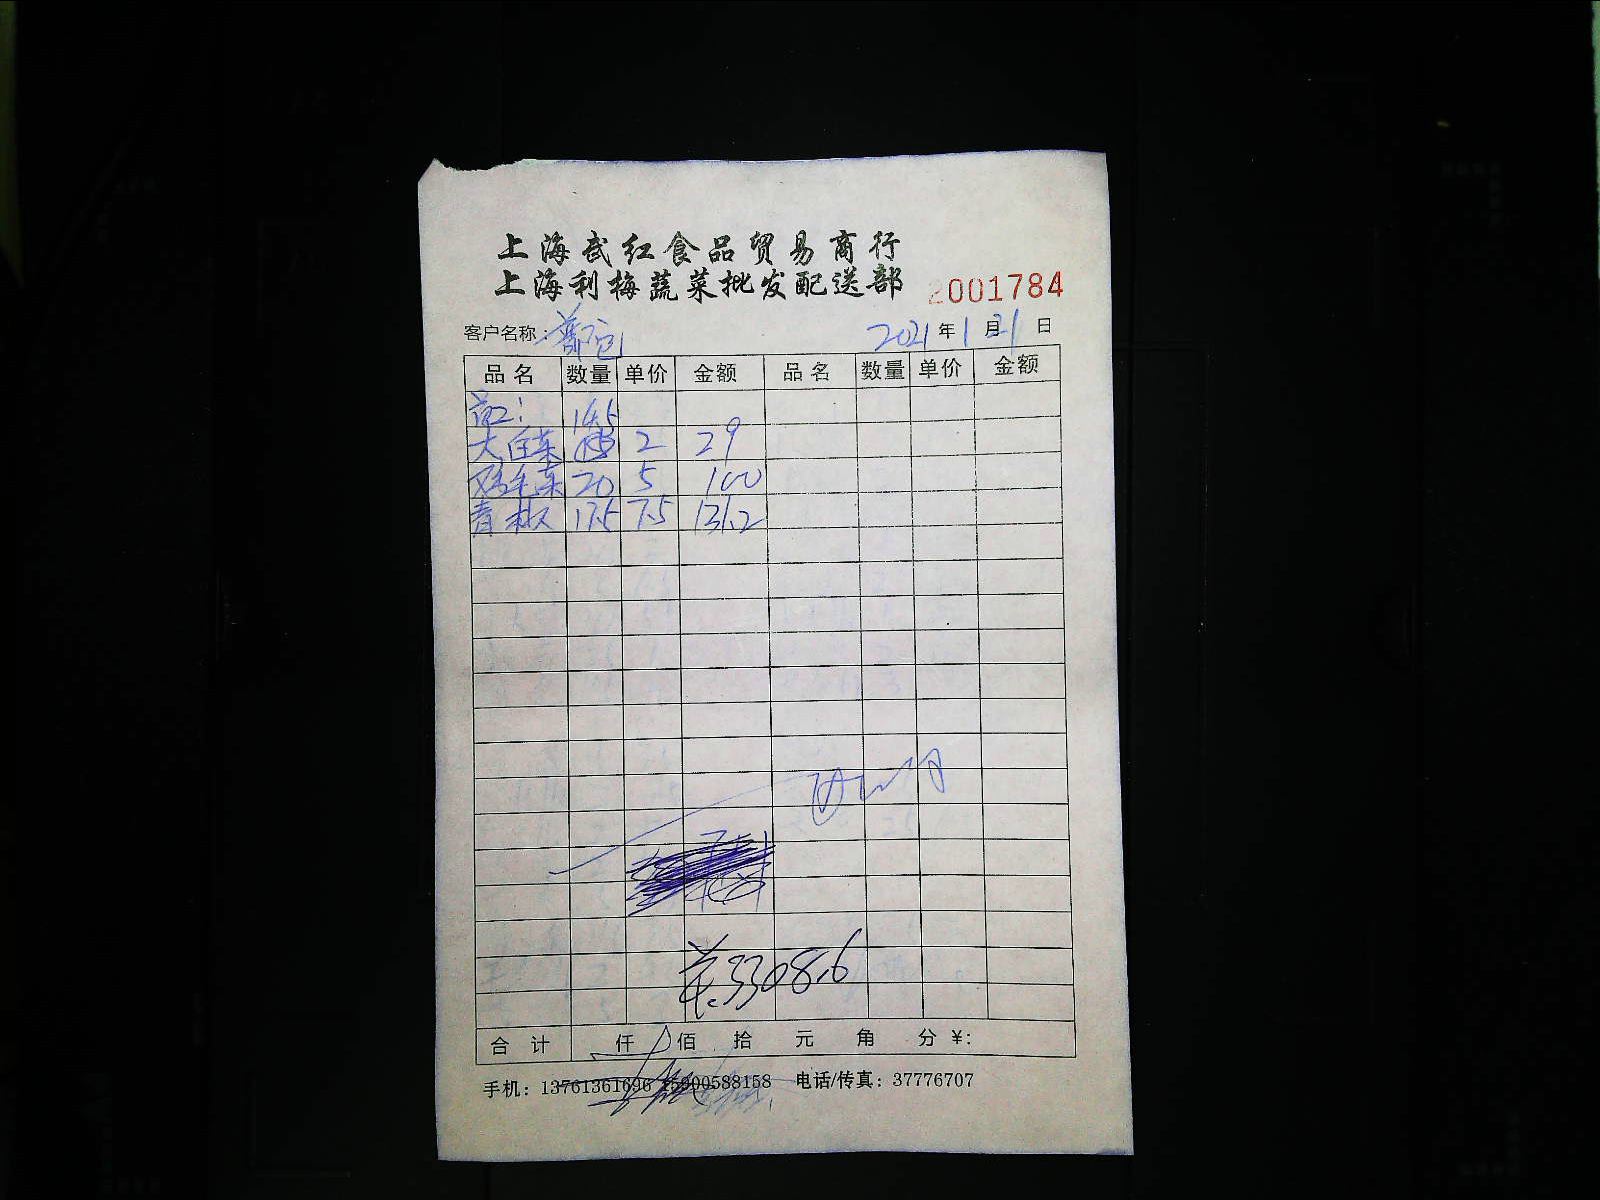 上海武红食品贸易商行
上海利梅蔬菜批发配送部 2001784
客户名称: 2021年1月21日
品名 数量 单价 金额 品名 数量 单价 金额
14.5
大白菜 2 29
鸡毛菜 20 5 100
青椒 17.5 7.5 131.2
共:3308.6
合计 仟 佰 拾 元 角 分 ¥:
手机: 13761361696 15900588158 电话/传真: 37776707